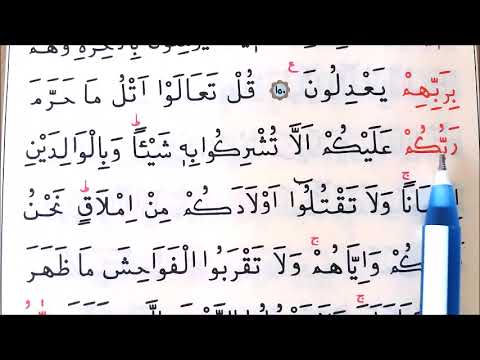 بِرَبِّهِمْ يَعْدِلُونَ ۝١٥٠ قُلْ تَعَالَوْا اَتْلُ مَا حَرَّمَ
رَبُّكُمْ عَلَيْكُمْ اَلَّا تُشْرِكُوا بِهٖ شَيْـًٔا وَبِالْوَالِدَيْنِ
وَلَا تَقْتُلُوٓا اَوْلَادَكُمْ مِنْ اِمْلَاقٍ نَحْنُ
وَاِيَّاهُمْ وَلَا تَقْرَبُوا الْفَوَاحِشَ مَا ظَهَرَ